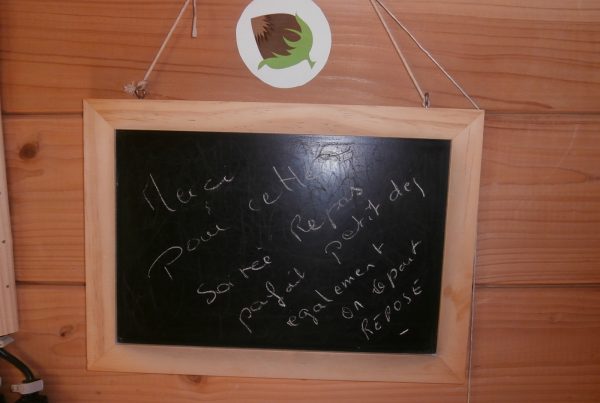 Merci
Pour cette
Soirée Repas
parfait Petit dej
egalement
on repart
REPOSE